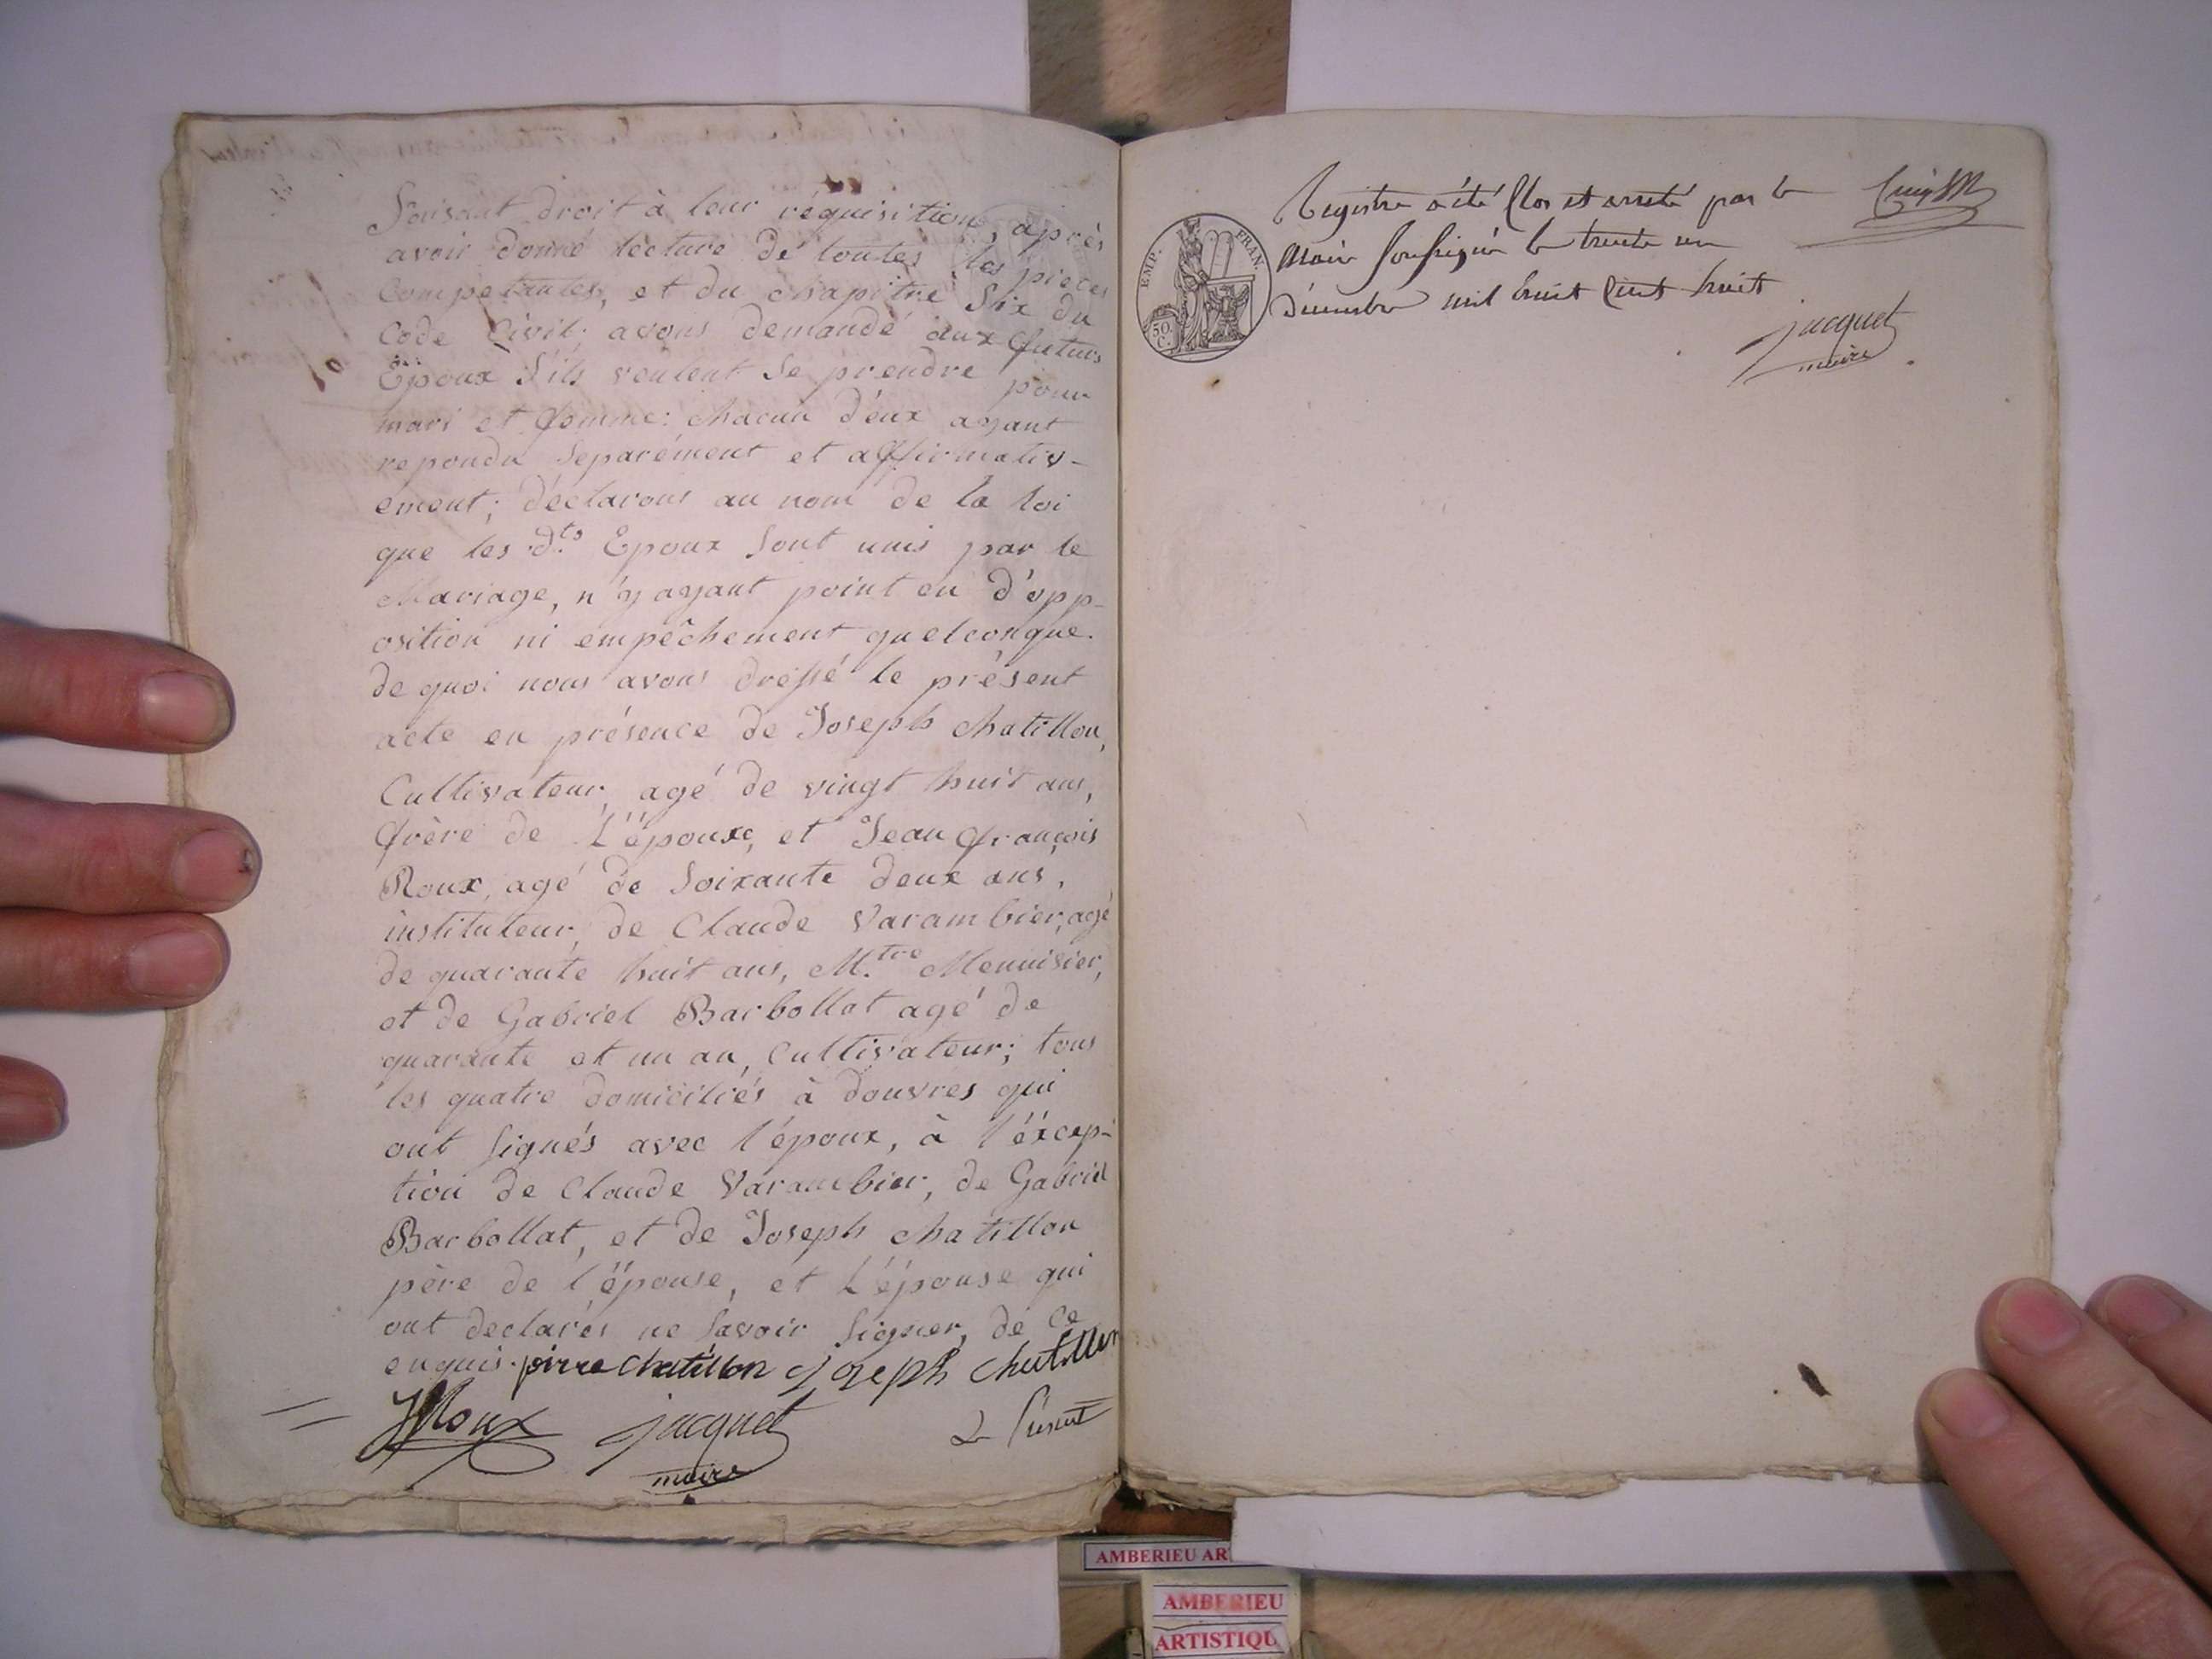 Faisant droit à leur réquisition, après
avoir donné lecture de toutes les pieces
Compétantes, et du chapitre Six du
Code Civil; avons demandé aux futurs
Epoux S'ils veulent Se prendre pour
mari et femme: chacun d'eux ayant
repondu Séparément et affirmativ-
ement; déclarons au nom de la loi
que les d.ts Epoux Sont unis par le
Mariage, n'y ayant point eu d'opp-
osition ni empêchement quelconque.
de quoi nous avons dressé le présent
acte en présence de Joseph chatillon,
Cultivateur, agé de vingt huit ans,
frère de L'épouxe, et Jean françois
Roux, agé de Soixante deux ans,
instituteur, de Claude Varambier, agé
de quarante huit ans, M.tre Menuisier,
et de Gabriel Barbollat agé de
quarante et un an, Cultivateur; tous
les quatre domiciliés à douvres qui
ont Signés avec l'époux, à l'éxcep-
tion de Claude Varambier, de Gabriel
Barbollat, et de Joseph chatillon
père de l'épouse, et L'épouse qui
ont declarés ne Savoir Signer, de Ce
enquis. pirre chatillon joseph chatillon
JRoux jacquet
maire
Le Présent
Registre a été Clos et arreté par le
Maire Soussigné le trente un
décembre mil huit Cent huit
jacquet
maire
EMP. FRAN.
50.
C.
AMBERIEU AR
AMBERIEU
ARTISTIQU